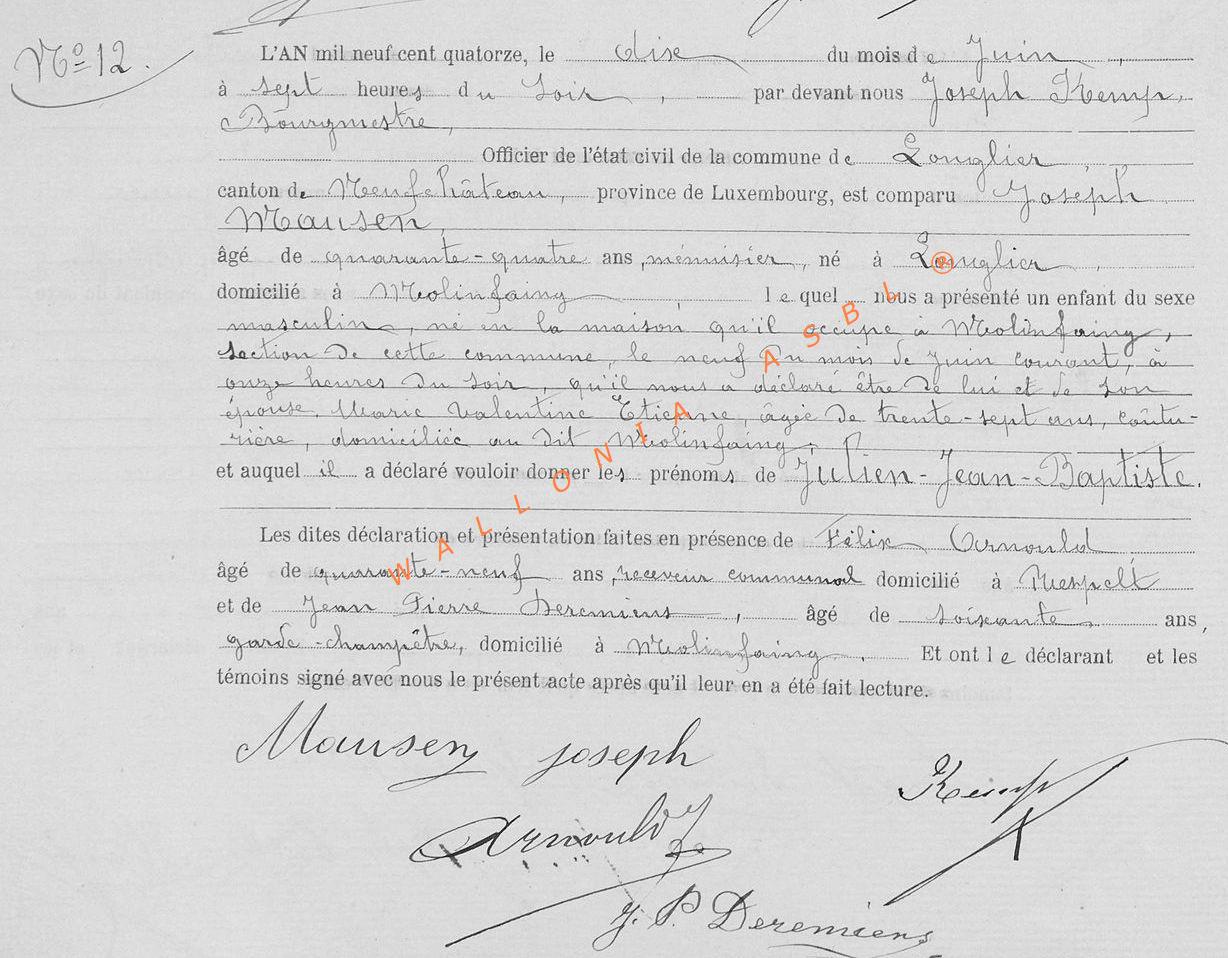 Nº 12.
L'AN mil neuf cent quatorze, le dix du mois de Juin,
à sept heures du Soir, par devant nous Joseph Kemp,
Bourgmestre,
Officier de l'état civil de la commune de Longlier,
canton de Neufchâteau, province de Luxembourg, est comparu Joseph
Mausen,
âgé de quarante-quatre ans, ménuisier, né à Longlier,
domicilié à Molinfaing, lequel nous a présenté un enfant du sexe
masculin, né en la maison qu'il occupe à Molinfaing,
section de cette commune, le neuf du mois de Juin courant, à
onze heures du soir, qu'il nous a déclaré être de lui et de son
épouse, Marie Valentine Etienne, âgée de trente-sept ans, coûtu-
rière, domiciliée au dit Molinfaing;
et auquel il a déclaré vouloir donner les prénoms de Julien-Jean-Baptiste.
Les dites déclaration et présentation faites en présence de Félix Arnould
âgé de quarante-neuf ans, receveur communal domicilié à Respelt
et de Jean Pierre Deremiens, âgé de soixante ans,
garde-champêtre, domicilié à Molinfaing. Et ont le déclarant et les
témoins signé avec nous le présent acte après qu'il leur en a été fait lecture.
Mausen joseph
Kemp
Arnould f
J. P. Deremiens
WALLONIA ASBL @